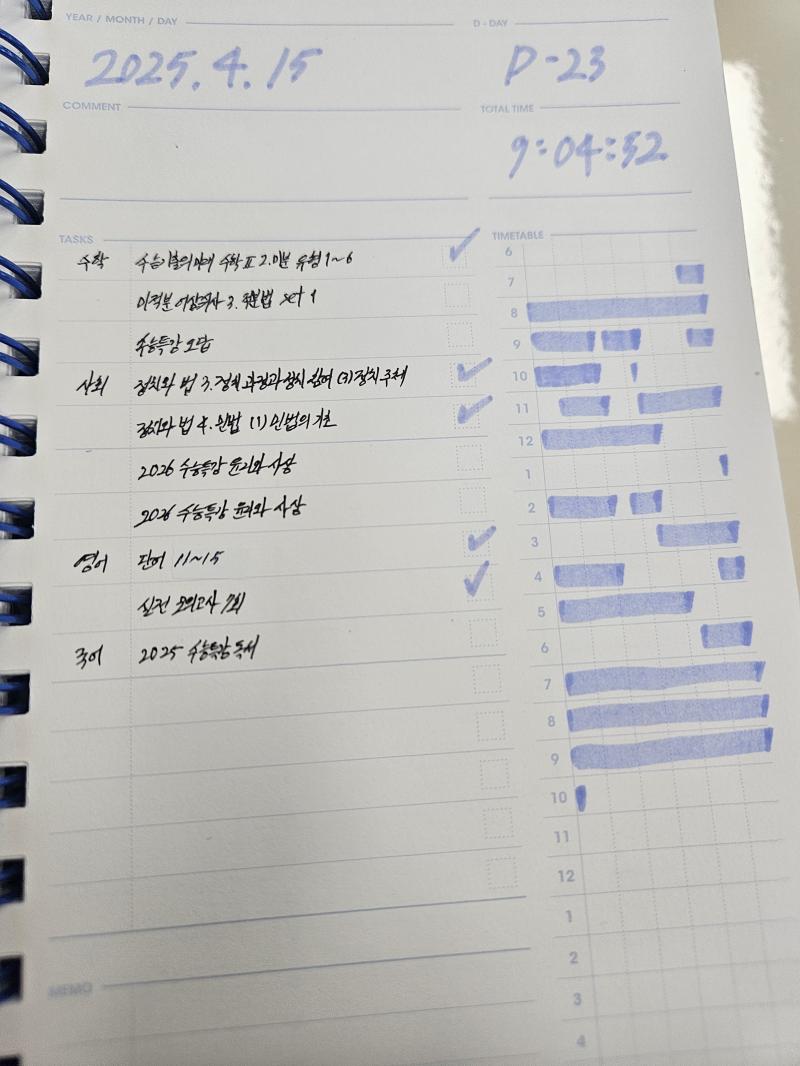 YEAR / MONTH / DAY
D - DAY
2025. 4. 15
D-23
COMMENT
TOTAL TIME
9:04:52
TASKS
TIMETABLE
수학 수능 기출의 미래 수학 II 2. 미분 유형 1~6
미적분 어삼쉬사 3. 적분법 set 1
수능특강 오답
사회 정치와 법 3. 정치 과정과 정치 참여 (3) 정치 주체
정치와 법 4. 민법 (1) 민법의 기초
2026 수능특강 윤리와 사상
2026 수능특강 윤리와 사상
영어 단어 11~15
실전 모의고사 7회
국어 2025 수능특강 독서
6
7
8
9
10
11
12
1
2
3
4
5
6
7
8
9
10
11
12
1
2
3
4
MEMO